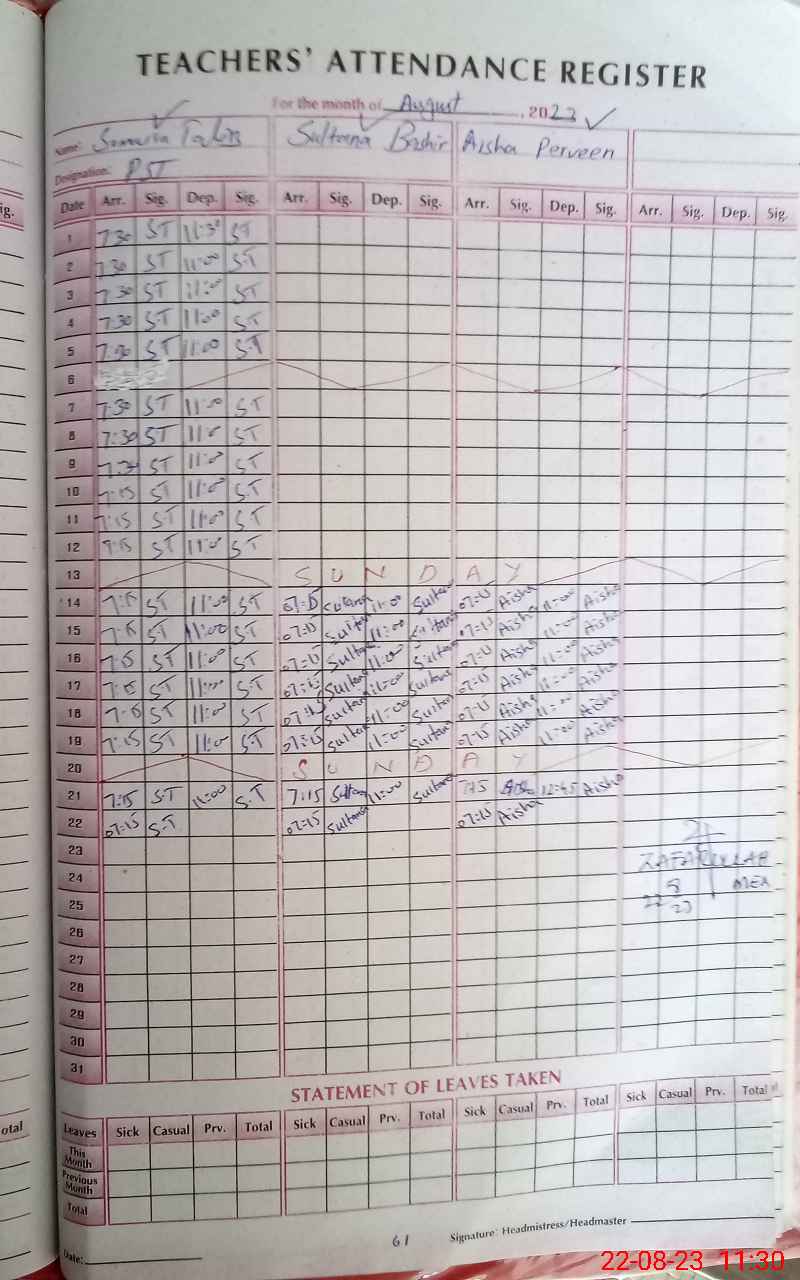 TEACHERS' ATTENDANCE REGISTER
For the month of August, 2023
Name: Sultana Bashir Aisha Perveen
Designation: PST
Date Arr. Sig. Dep. Sig. Arr. Sig. Dep. Sig. Arr. Sig. Dep. Sig. Arr. Sig. Dep. Sig.
1 7:30 ST 11:30 ST
2 7:30 ST 11:00 ST
3 7:30 ST 11:00 ST
4 7:30 ST 11:00 S.T
5 7:30 ST 11:00 S.T
6
7 7:30 ST 11:00 ST
8 7:30 ST 11:0 ST
9 7:30 ST 11:00 ST
10 7:15 ST 11:00 S.T
11 7:15 S.T 11:00 ST
12 7:15 ST 11:00 ST
13 SUNDAY
14 7:15 ST 11:00 ST 07:15 Sultana 11:00 Sultana 07:15 Aisha 11:00 Aisha
15 7:15 ST 11:00 ST 07:15 Sultana 11:00 Sultana 07:15 Aisha 11:00 Aisha
16 7:15 ST 11:00 ST 07:15 Sultana 11:00 Sultana 07:15 Aisha 11:00 Aisha
17 7:15 ST 11:00 ST 07:15 Sultana 11:00 Sultana 07:15 Aisha 11:00 Aisha
18 7:15 ST 11:00 ST 07:15 Sultana 11:00 Sultana 07:15 Aisha 11:00 Aisha
19 7:15 ST 11:0 S.T 07:15 Sultana 11:00 Sultana 07:15 Aisha 11:00 Aisha
20 SUNDAY
21 7:15 S.T 11:00 S.T 7:15 Sultana 11:00 Sultana 7:15 Aisha 12:45 Aisha
22 07:15 S.T 07:15 Sultana 07:15 Aisha
23
24 ZAFARULLAH
25 22 8 23 MEA
26
27
28
29
30
31
STATEMENT OF LEAVES TAKEN
Leaves Sick Casual Prv. Total Sick Casual Prv. Total Sick Casual Prv. Total Sick Casual Prv. Total
This Month
Previous Month
Total
Date: 61 Signature: Headmistress/Headmaster
22-08-23 11:30
ig.
otal